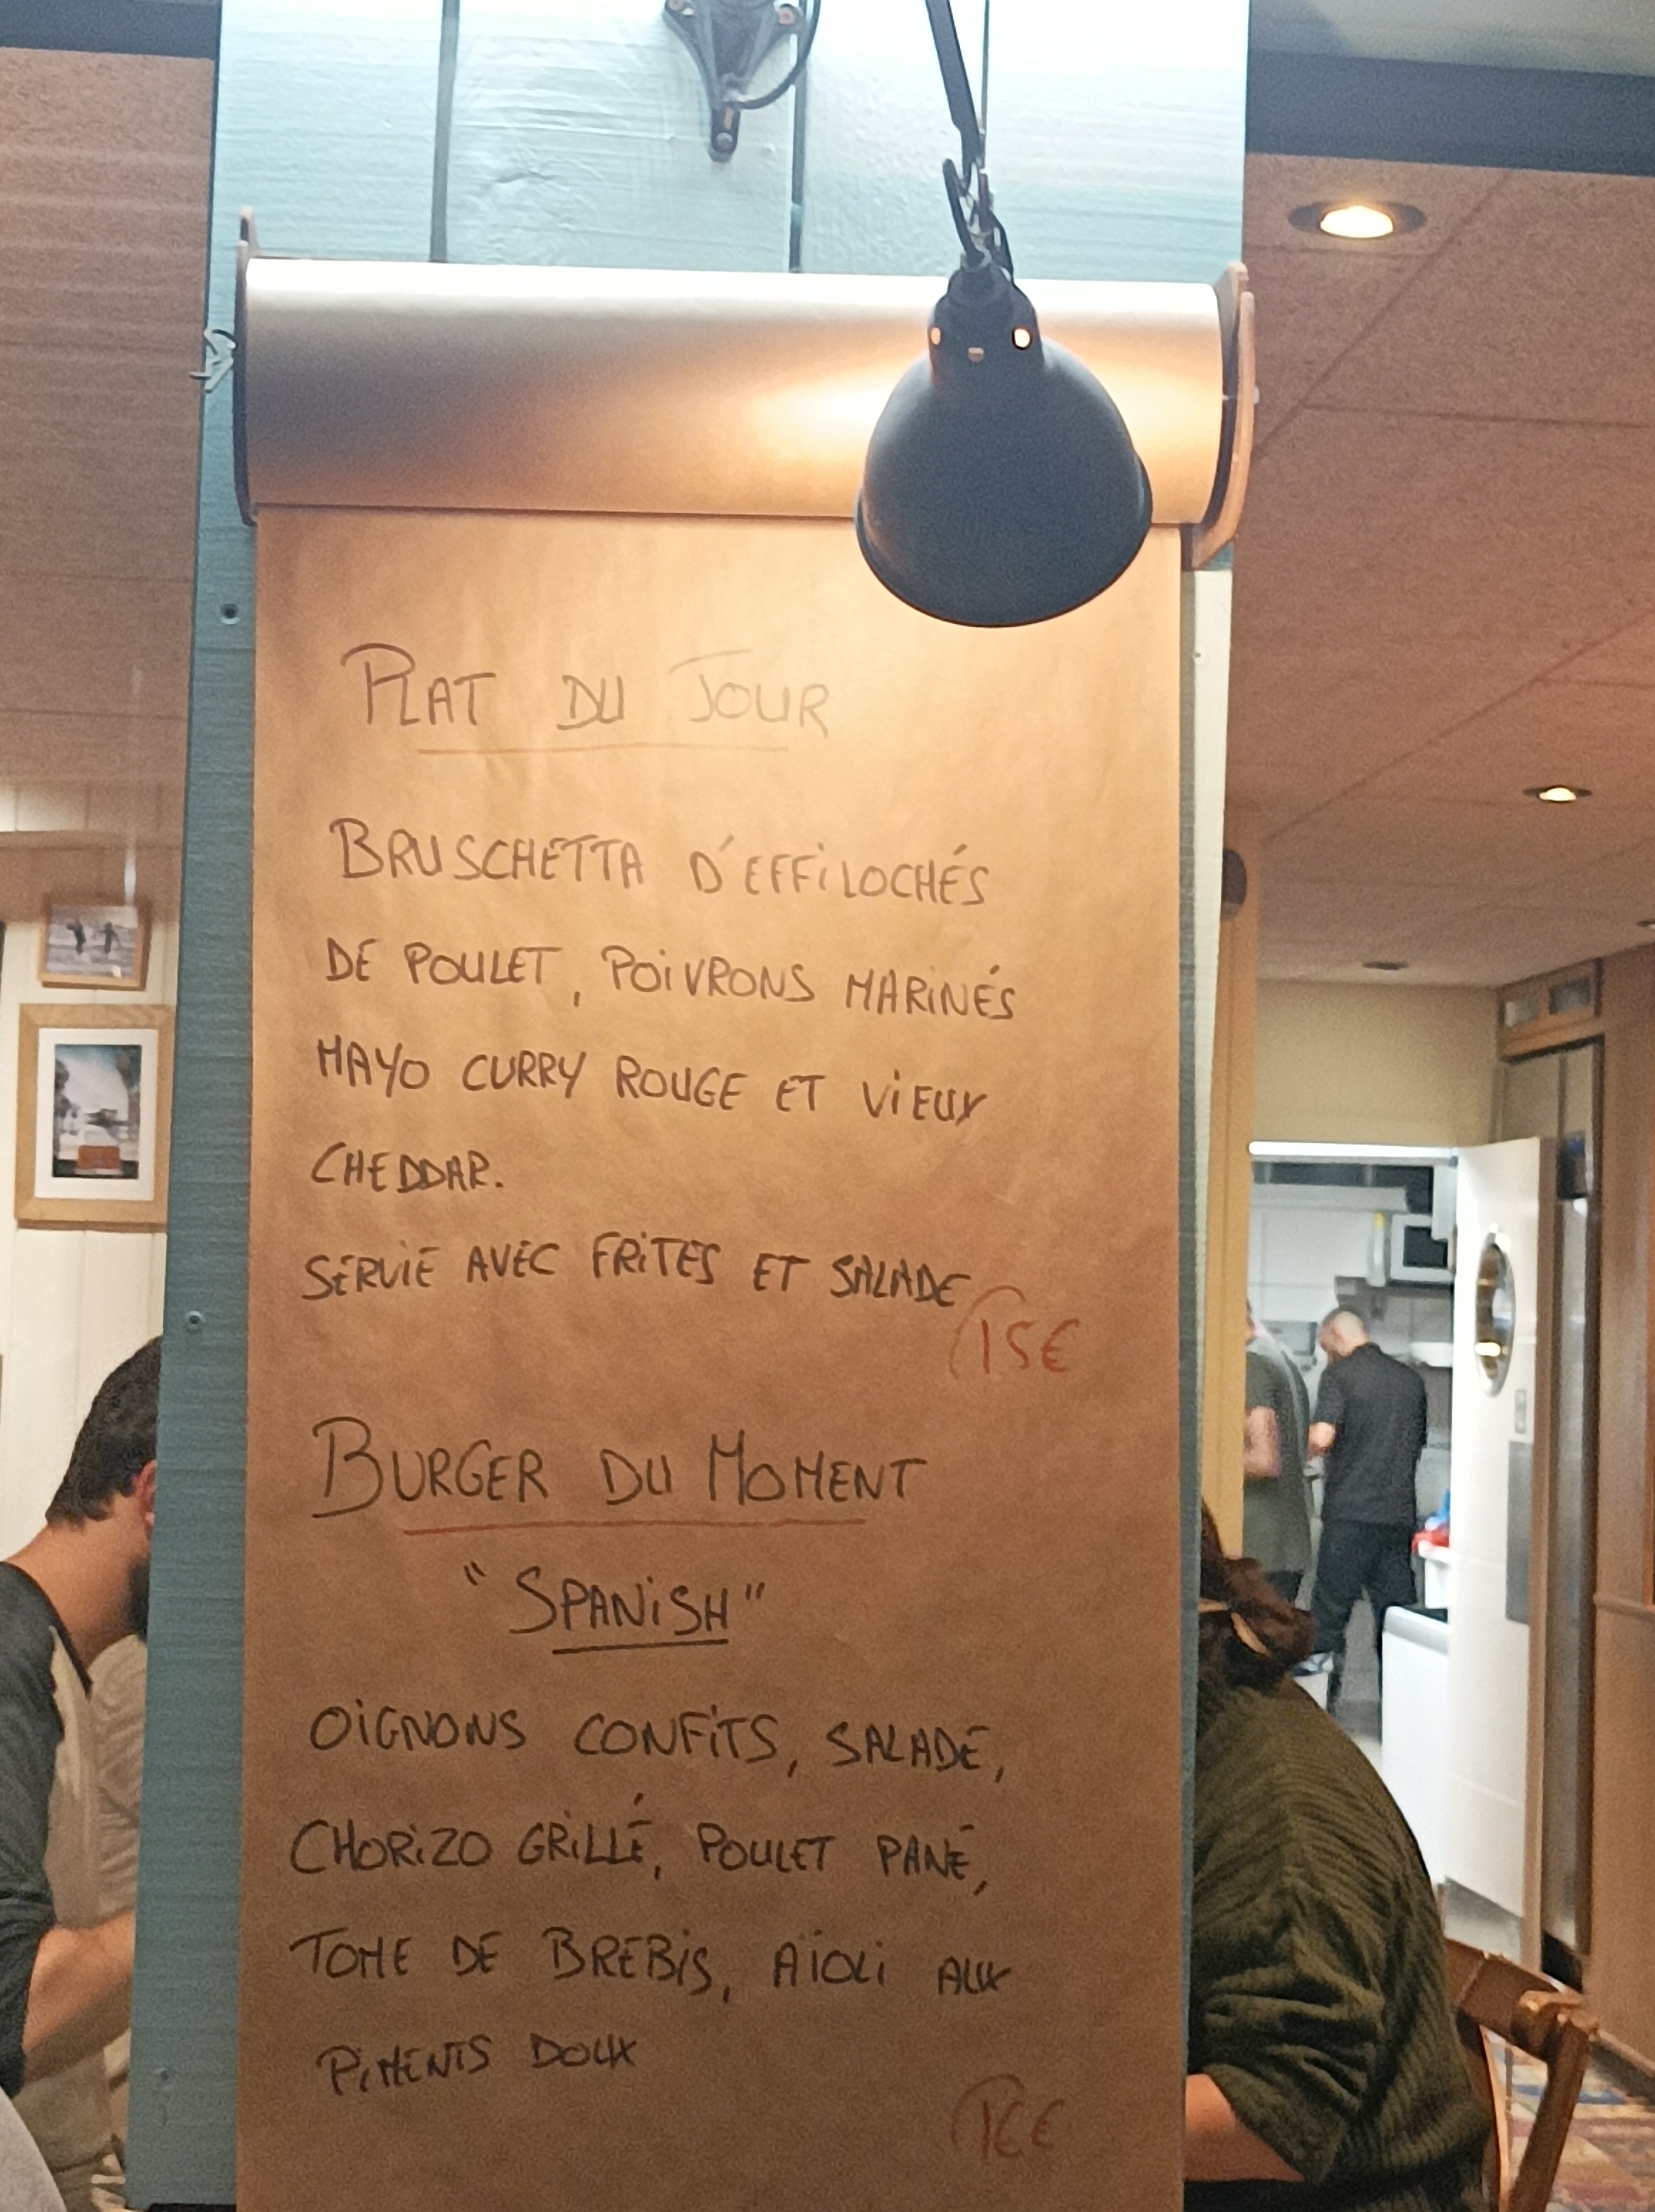 PLAT DU JOUR
BRUSCHETTA D'EFFiLOCHÉS
DE POULET, POiVRONS MARiNÉS
MAYO CURRY ROUGE ET ViEUX
CHEDDAR.
SERViE AVEC FRiTES ET SALADE
15€
BURGER DU MOMENT
"SPANiSH"
OiGNONS CONFiTS, SALADE,
CHORiZO GRiLLÉ, POULET PANÉ,
TOME DE BREBiS, AÏOLi AUX
PiMENTS DOUX
16€